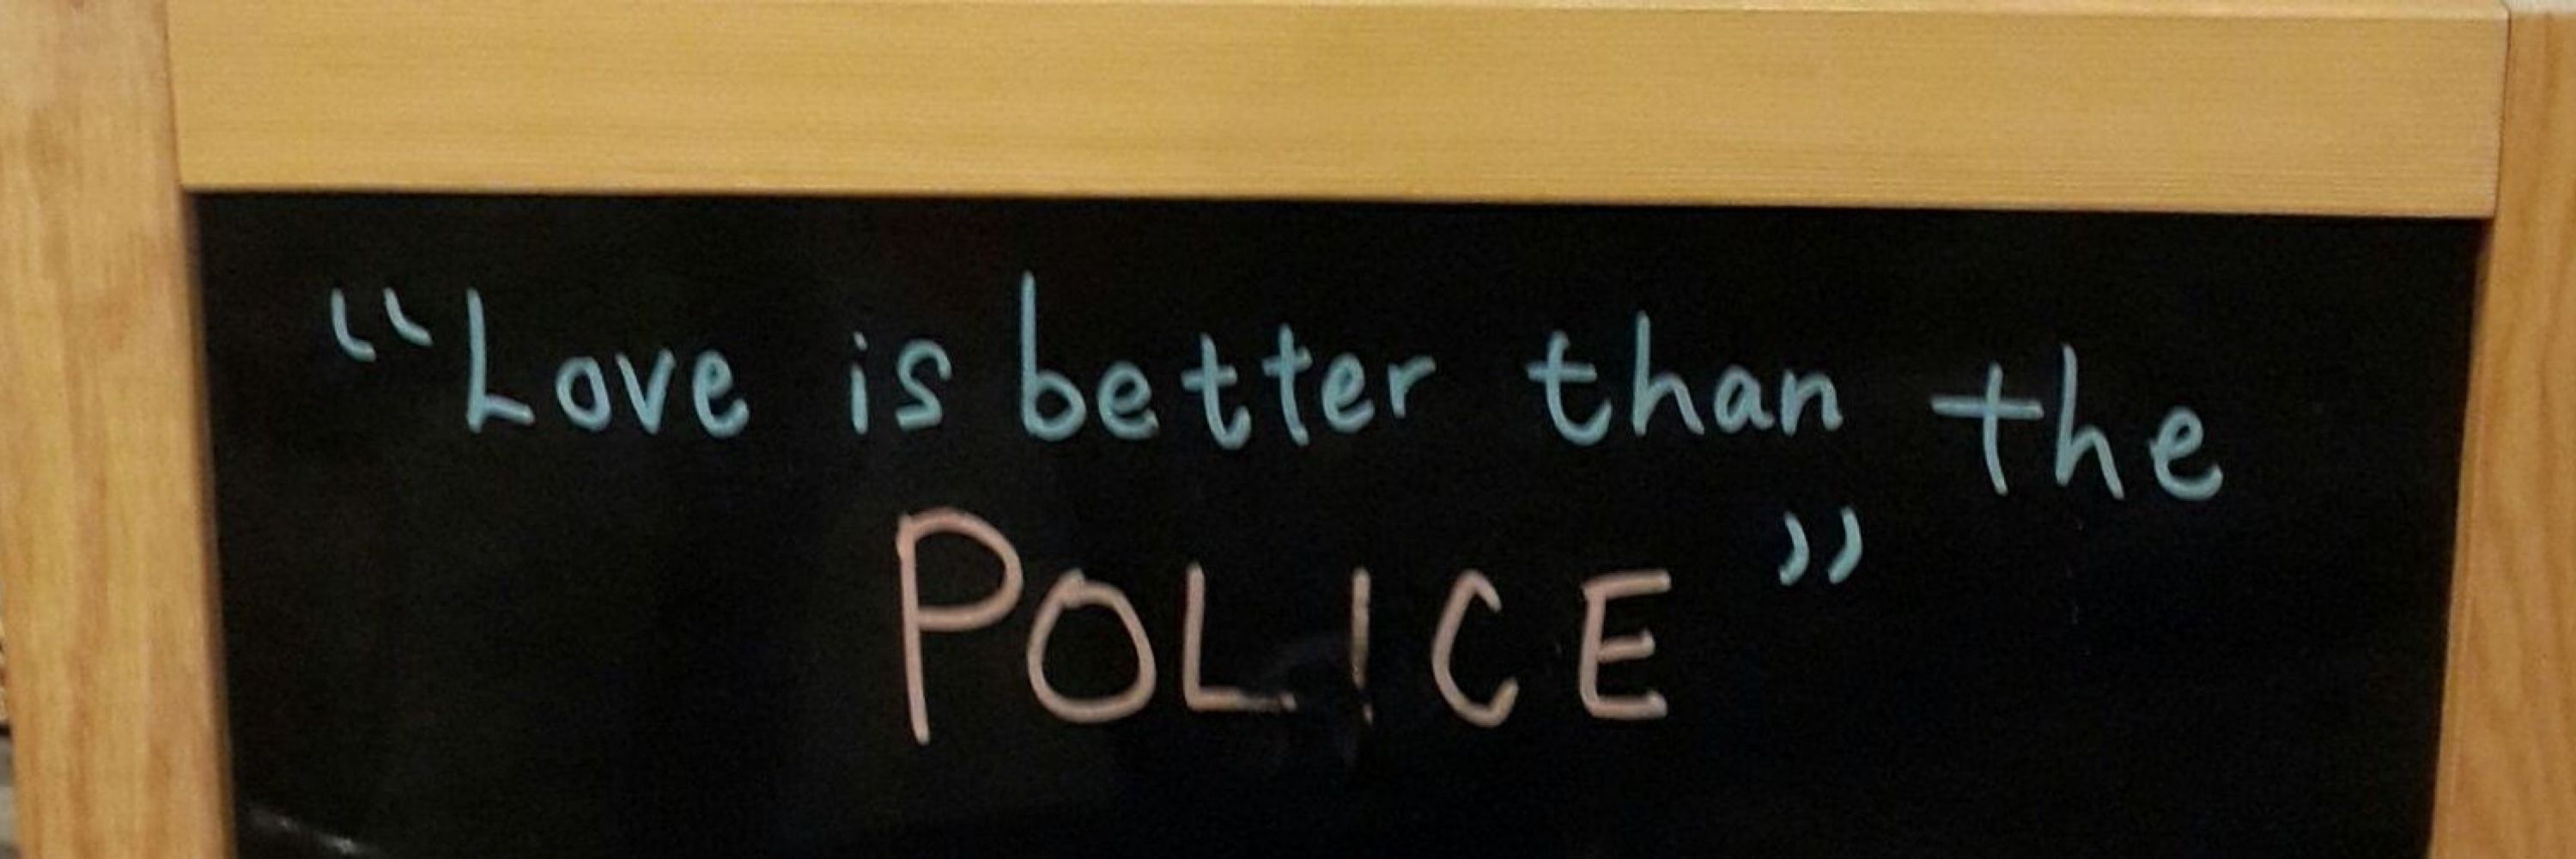 “Love is better than the
POLICE”